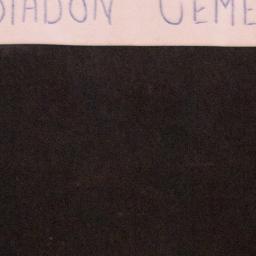 DIADON CEME